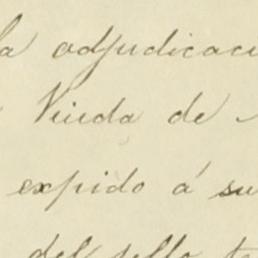 la adjudicaci
Viuda de
expido á su
del sello te